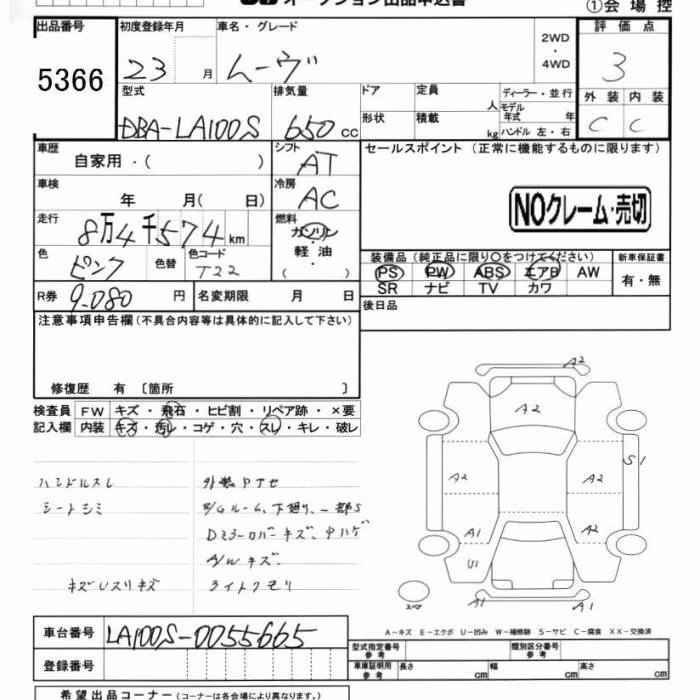 オークション出品申込書
①会場控
出品番号 初度登録年月 車名・グレード 2WD・4WD 評価点
5366 23 月 ムーヴ 3
型式 排気量 ドア 定員 人 ディーラー・並行 外装 内装
DBA-LA100S 650 cc 形状 積載 kg モデル年式 年 ハンドル 左・右 C C
車歴 自家用・( ) シフト AT セールスポイント (正常に機能するものに限ります)
車検 年 月( 日) 冷房 AC
NOクレーム・売切
走行 8万4千574km 燃料 ガソリン 軽油・( )
色 ピンク 色替 色コード T22
装備品(純正品に限り○をつけてください) 新車保証書
PS PW ABS エアB AW 有・無
SR ナビ TV カワ
R券 9,080 円 名変期限 月 日 後日品
注意事項申告欄(不具合内容等は具体的に記入して下さい)
修復歴 有 〔箇所 〕
検査員 FW キズ・飛石・ヒビ割・リペア跡・×要
記入欄 内装 キズ・汚レ・コゲ・穴・スレ・キレ・破レ
ハンドルスレ
シートシミ
キズ
外装
ルーム、下廻り、一部S
Dミラーカバーキズ、
A/Wキズ、
ライトクモリ
A2
A2
S1
A2 A2
A1 A2
U1
A1 A1
スペア
A-キズ E-エクボ U-凹み W-補修跡 S-サビ C-腐食 XX-交換済
車台番号 LA100S-0055665
型式指定番号 参考 類別区分番号 参考
登録番号 車庫証明用 参考 長さ cm 幅 cm 高さ cm
希望出品コーナー(コーナーは各会場により異なります。)